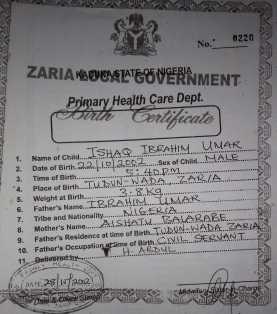 No. 0220
KADUNA STATE OF NIGERIA
ZARIA LOCAL GOVERNMENT
Primary Health Care Dept.
Birth Certificate
1. Name of Child ISHAQ IBRAHIM UMAR
2. Date of Birth 22/10/2002 Sex of Child MALE
3. Time of Birth 5:40PM
4. Place of Birth TUDUN-WADA, ZARIA
5. Weight at Birth 3.8kg
6. Father's Name IBRAHIM UMAR
7. Tribe and Nationality NIGERIA
8. Mother's Name AISHATU SALARABE
9. Father's Residence at time of Birth TUDUN-WADA ZARIA
10. Father's Occupation at time of Birth CIVIL SERVANT
11. Delivered by H. ABDUL
Date & Clinic Stamp